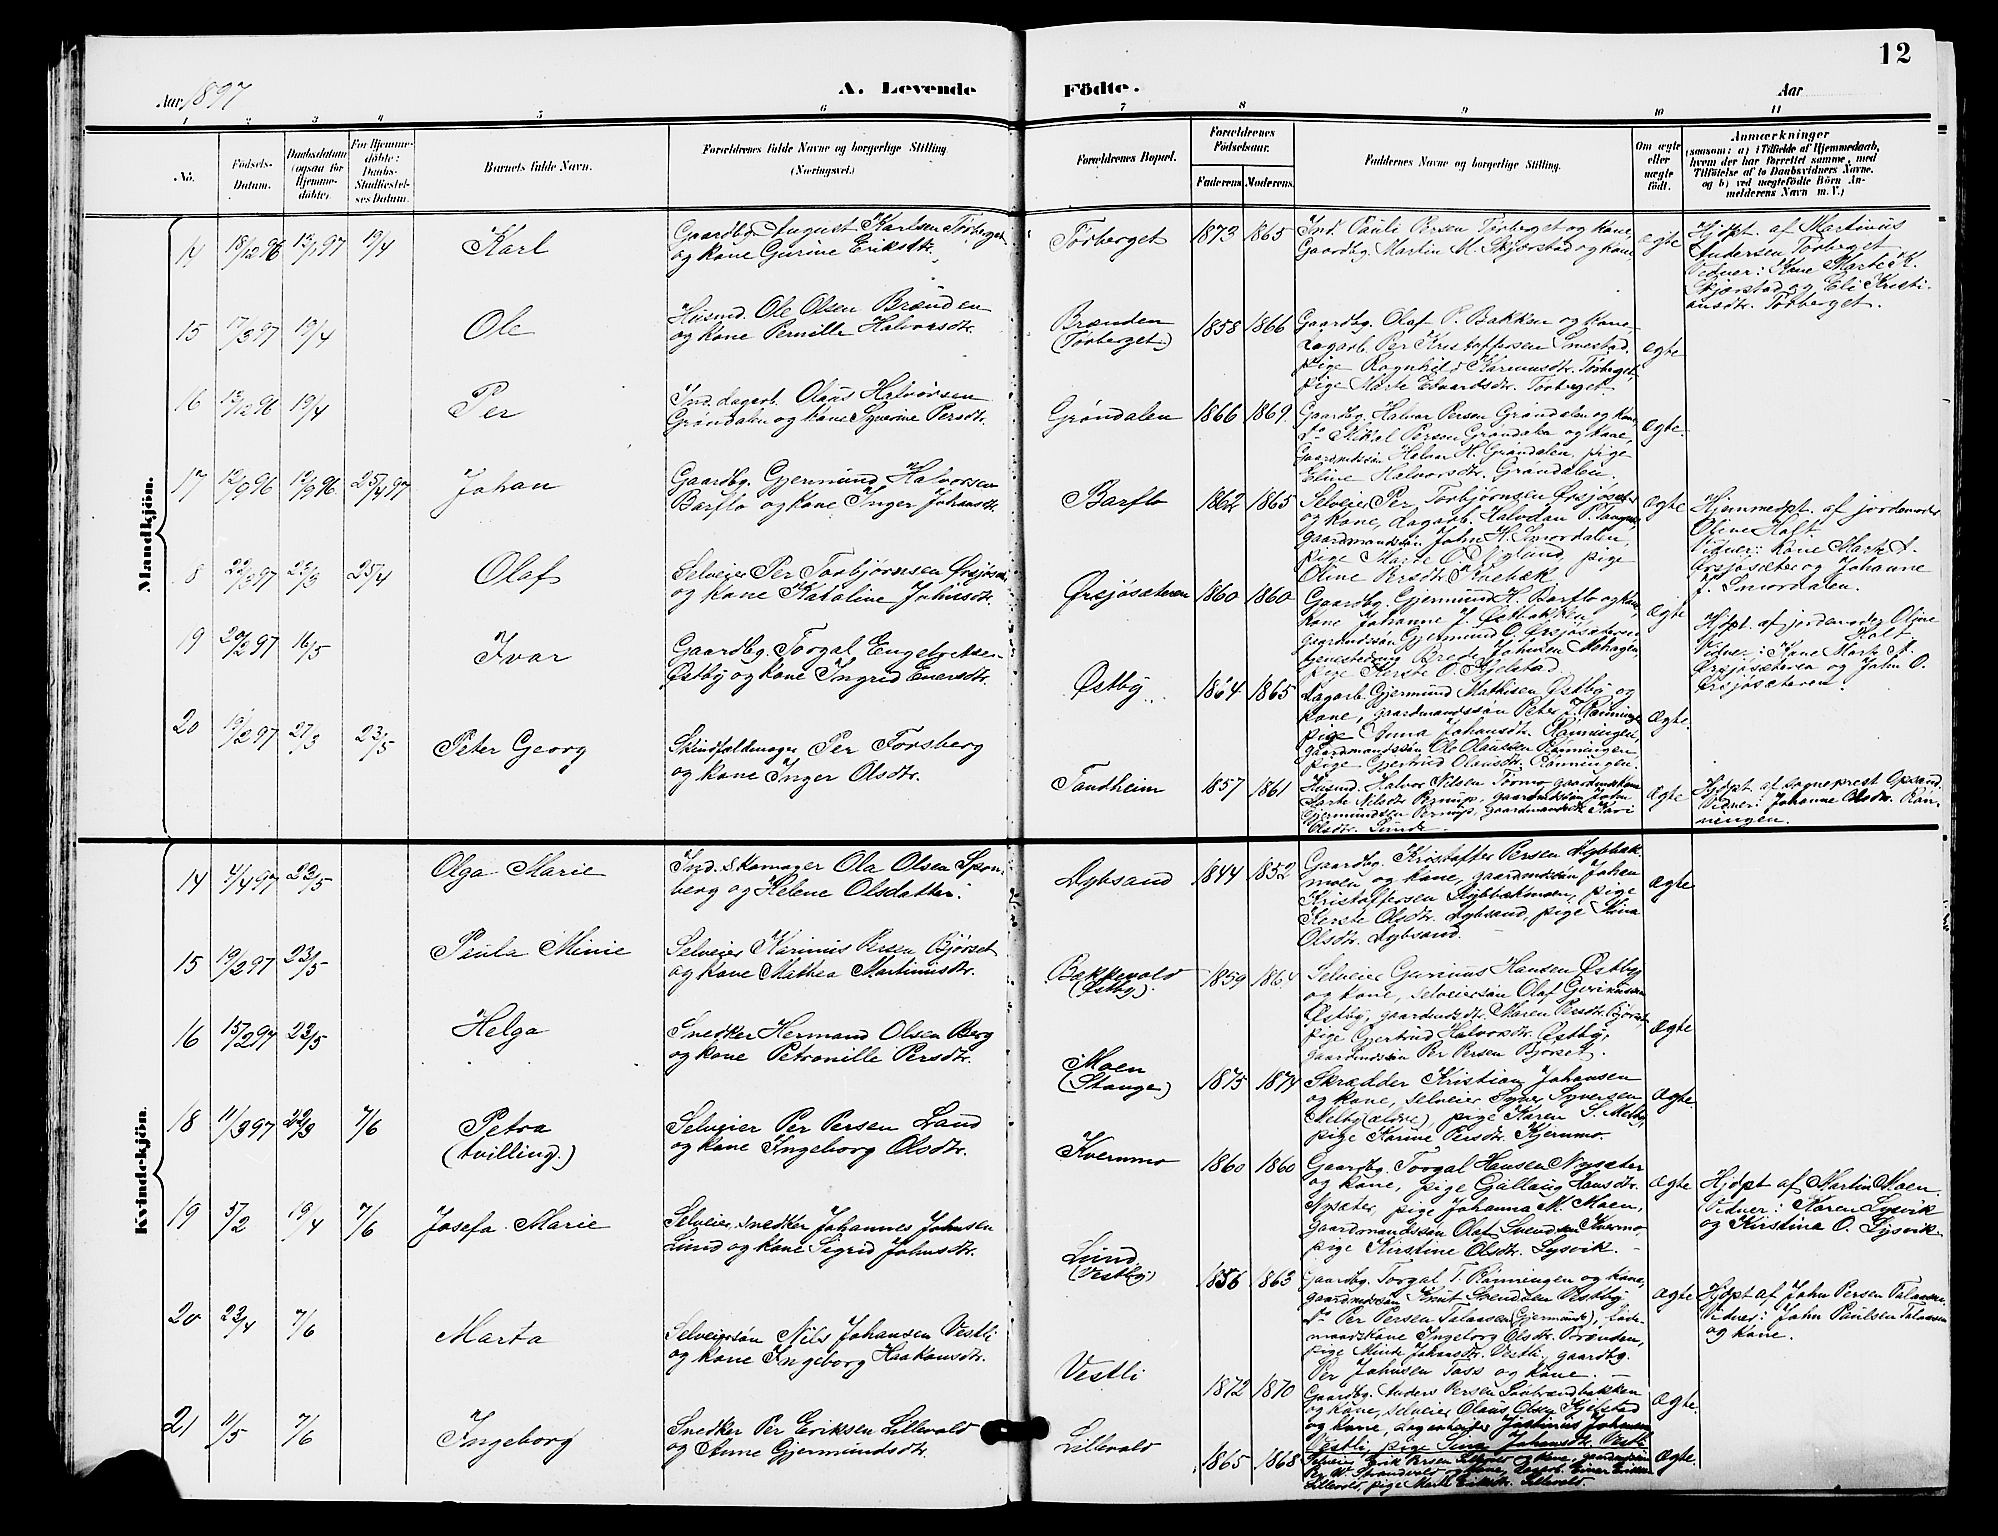 12
Aar 1897
A. Levende
Födte.
Aar
1 2 3 4 5 6 7 8 9 10 11
No.
Födsels-
Datum.
Daabsdatum
(ogsaa for
Hjemme-
döbte).
For Hjemme-
döbte:
Daabs-
Stadfæstel-
ses Datum.
Barnets fulde Navn.
Forældrenes fulde Navne og borgerlige Stilling.
(Næringsvei.)
Forældrenes Bopæl.
Forældrenes
Födselsaar.
Faderens. Moderens.
Faddernes Navne og borgerlige Stilling.
Om ægte
eller
uægte
födt.
Anmærkninger
(saasom: a) i Tilfælde af Hjemmedaab,
hvem der har forrettet samme, med
Tilföielse af to Daabsvidners Navne,
og b) ved uægtefödte Börn An-
melderens Navn m. V.)
Mandkjön.
14 18/12 96 13/1 97 19/4 Karl
Gaardbg. August Karlsen Törberget
og kone Gurine Eriksdtr.
Törberget 1873 1865
Ind. Pauli Persen Törberget og kone,
Gaardbg. Martin M. Skjærstad og kone
ægte
Hjdpt. af Martinus
Andersen Törberget
Vidner: Kone Marte K.
Skjærstad og Eli Kristi-
ansdtr. Törberget.
15 17/3 97 19/4 Ole
Husmd. Ole Olsen Brænden
og kone Pernille Halvorsdtr.
Brænden
(Törberget)
1858 1866
Gaardbg. Olaf P. Bakken og kone,
dagarb. Per Kristoffersen Smestad,
pige Ragnhild Karinusdtr. Törberget,
pige Marte Edvardsdtr. Törberget.
ægte
16 13/12 96 19/4 Per
Ind. dagarb. Olaus Halvorsen
Gröndalen og kone Syverine Persdtr.
Gröndalen 1866 1869.
Gaardbg. Halvor Persen Gröndalen og kone,
do Mikal Persen Gröndalen og kone,
Gaardmdssön Halvor H. Gröndalen, pige
Eline Halvorsdtr. Gröndalen.
ægte.
17 12/9 96 13/9 96 25/4 97 Johan
Gaardbg. Gjermund Halvorsen
Barflo og kone Inger Johansdtr.
Barflo 1862 1865
Selveier Per Torbjörnsen Örsjöseter
og kone, dagarb. Halvdan P.
gaardmandssön John H. Smordalen,
pige Marte O. Nylund, pige
Oline Persdtr. Knebæk
ægte
Hjemmedpt. af jordemoder
Oline Holt.
Vidner: Kone Marte A.
Örsjösæter og Johanne
J. Smordalen.
8 22/3 97 23/3 25/4 Olaf
Selveier Per Torbjörnsen Örsjös.
og kone Kataline Johnsdtr.
Örsjösæteren 1860 1860
Gaardbg. Gjermund H. Barflo og kone,
kone Johanne J. Östbakken,
gaardmdssön Gjermund O. Örsjösæteren
tjenestedreng Brede Johnsen
pige Kerste O. Kjelstad.
ægte
Hjdpt. af jordemoder Oline
Holt
Vidner: Kone Marte A.
Örsjösæteren og John O.
Örsjösæteren.
19 20/2 97 16/5 Ivar
Gaardbg. Torgal Engebretsen
Östby og kone Ingrid Enersdtr.
Östby 1864 1865
Dagarb. Gjermund Mathisen Östby og
kone, gaardmandssön Peter J. Rönningen,
pige Anna Johansdtr. Rönningen,
gaardmandssön Ole Olaussen Rönningen,
pige Gjertrud Olausdtr. Rönningen.
ægte.
20 19/2 97 21/3 23/5 Peter Georg
Skindfældmager Per Forsberg
og kone Inger Olsdtr.
Tandheim 1857 1861
Husmd. Halvor Nilsen Törmo, gaardmdskone
Marte Nilsdtr.
Gjermundsen
Olsdtr. Sunde.
ægte
Hjdpt. af sogneprest Opsand
Vidner: Johanne Olsdtr. Rön-
ningen.
Kvindekjön.
14 4/4 97 23/5 Olga Marie
Ind. skomager Ola Olsen Spon-
berg og Helene Olsdatter.
Dybsand 1844 1852
Gaardbg. Kristoffer Persen Dybbæk-
moen og kone, gaardmdssön Johan
Kristoffersen Dybbækmoen, pige
Kerste Olsdtr. Dybsand, pige Stina
Olsdtr. Dybsand.
ægte
15 19/2 97 23/5 Paula Minie
Selveier Karinus Persen Björset
og kone Mathea Martinusdtr.
Bakkevold
(Östby).
1859 1864
Selveier Gurinus Hansen Östby
og kone, selveiersön Olaf Gurinussen
Östby, gaardmdsdtr. Maren Persdtr. Björset,
pige Gjertrud Halvorsdtr. Östby,
gaardmdssön Per Persen Björset.
ægte
16 15/2 97 23/5 Helga
Snedker Hermand Olsen Berg
og kone Petronille Persdtr.
Moen
(Stange)
1875 1874
Skrædder Kristian Johansen
og kone, selveier Syver Syversen
Melby (ældre), pige Karen S. Melby,
pige Karine Persdtr. Kjernmo.
ægte.
18 11/3 97 22/3 7/6 Petra
(tvilling.)
Selveier Per Persen Lund
og kone Ingeborg Olsdtr.
Kvernmo 1860 1860
Gaardbg. Torgal Hansen Nysæter
og kone, pige Gullaug Hansdtr.
Nysæter, pige Johanna M. Moen,
gaardmandssön Olaf Svendsen Kvernmo,
pige Kirstine Olsdtr. Lysvik.
ægte
Hjdpt af Martin Moen.
Vidner: Karen Lysvik
og Kirstina O. Lysvik.
19 5/2 19/4 7/6 Josefa Marie
Selveier, snedker Johannes Johnsen
Lund og kone Sigrid Johnsdtr.
Lund,
(Vestby)
1856 1863
Gaardbg. Torgal T. Rönningen og kone,
gaardmdssön Knut Svendsen Östby
do Per Persen Talaasen (Gjermunds),
maadskone Ingeborg Olsdtr. Brænden,
pige Minda Johansdtr. Vestli, gaardbg.
Per Johnsen Tass og kone.
ægte
Hjdpt af John Persen Talaasen.
Vidner: John Paulsen Talaasen
og kone.
20 23/4 7/6 Marta
Selveiersön Nils Johansen Vestli
og kone Ingeborg Haakonsdtr.
Vestli 1872 1870
Gaardbg. Anders Persen
og kone, selveier Olaus Olsen Kjelstad
og kone, Dagarbeider Justinus Johansen
Vestli, pige Lina Johansdtr. Vestli
ægte.
21 11/5 7/6 Ingeborg
Snedker Per Eriksen Lillevold
og Anne Gjermundsdtr.
Lillevold 1865 1868
Selveier Erik Persen Lillevold og kone, gaardmdssön
Per W. Strandvold og kone, dagarb. Einar Eriksen
Lillevold, pige Marte Eriksdtr. Lillevold.
ægte.